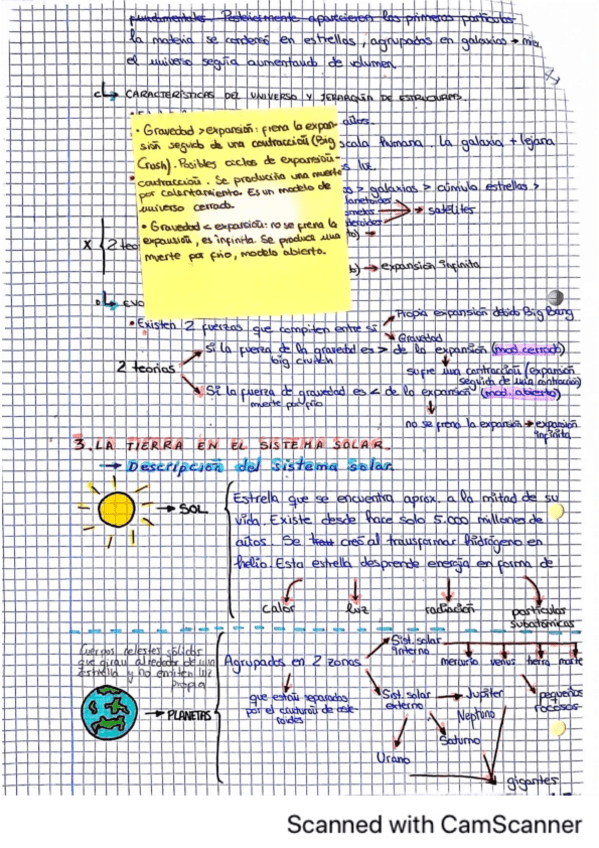 fundamentales. Posteriormente aparecieron las primeras partículas
la materia se condensó en estrellas, agrupadas en galaxias →
el universo seguía aumentando de volumen.
c↳ CARACTERÍSTICAS DEL UNIVERSO Y JERARQUÍA DE ESTRUCTURAS.
• Gravedad > expansión: frena la expan-
sión seguido de una contracción (Big
Crush). Posibles ciclos de expansión-
contracción. Se produciría una muerte
por calentamiento. Es un modelo de
universo cerrado.
• Gravedad < expansión: no se frena la
expansión, es infinita. Se produce una
muerte por frío, modelo abierto.
años.
scala humana. La galaxia + lejana
luz.
> galaxias > cúmulo estrellas >
→ satélites
X { 2 teo
b) → expansión infinita
D↳ EVO
• Existen 2 fuerzas que compiten entre sí
Propia expansión debido Big Bang
Gravedad
2 teorías
Si la fuerza de la gravedad es > de la expansión (mod. cerrado)
big crunch
sufre una contracción (expansión
seguida de una contracción)
Si la fuerza de gravedad es < de la expansión (mod. abierto)
muerte por frío
no se frena la expansión → expansión
infinita
3. LA TIERRA EN EL SISTEMA SOLAR.
→ Descripción del sistema solar
→ SOL
Estrella que se encuentra aprox. a la mitad de su
vida. Existe desde hace solo 5.000 millones de
años. Se creó al transformar hidrógeno en
helio. Esta estrella desprende energía en forma de
calor luz radiación partículas
subatómicas
Cuerpos celestes sólidos
que giran alrededor de una
estrella y no emiten luz
propia
→ PLANETAS
Agrupados en 2 zonas
que están separados
por el cinturón de aste-
roides
Sist. solar
interno
mercurio venus tierra marte
pequeños
rocosos
Sist. solar
externo
→ Jupiter
Neptuno
Saturno
Urano
gigantes
Scanned with CamScanner